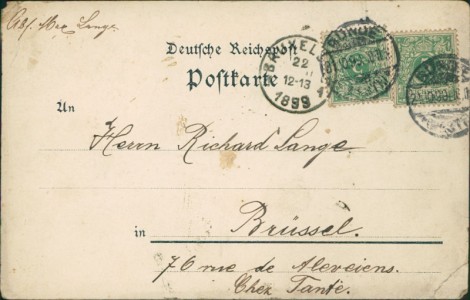 Abs. Max Lange.
Deutsche Reichspost
Postkarte
BRUXELLES
22
12-13
1899
BÜNDE
An
Herrn Richard Lange
in Brüssel.
76 rue de
Chez Tante.